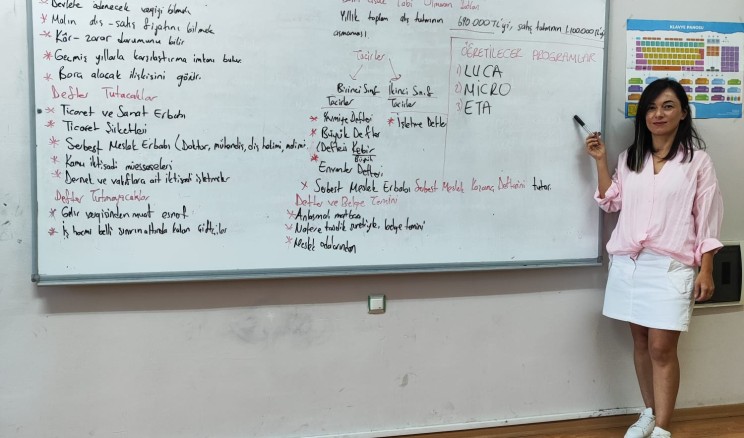 * Devlete ödenecek vergiyi bilmek
* Malın alış-satış fiyatını bilmek
* Kâr-zarar durumunu bilir
* Geçmiş yıllarla karşılaştırma imkanı bulur
* Borç alacak ilişkisini görür.
Defter Tutacaklar
* Ticaret ve Sanat Erbabı
* Ticaret Şirketleri
* Serbest Meslek Erbabı (Doktor, mühendis, diş hekimi, mimar
* Kamu iktisadi müesseseleri
* Dernek ve vakıflara ait iktisadi işletmeler
Defter Tutmayacaklar
* Gelir vergisinden muaf esnaf
* İş hacmi belli sınırın altında kalan çiftçiler
Yıllık toplam alış tutarının 690.000 TL'yi, satış tutarının 1.100.000 TL'yi
aşmaması.
Tacirler
Birinci Sınıf
Tacirler
* Yevmiye Defteri
* Büyük Defter
(Defteri Kebir
* Envanter Defteri
İkinci Sınıf
Tacirler
* İşletme Defteri
* Serbest Meslek Erbabı Serbest Meslek Kazanç Defterini tutar.
Defter ve Belge Temini
* Anlaşmalı matbaa,
* Notere tasdik suretiyle, belge temini
* Meslek odalarından
ÖĞRETİLECEK PROGRAMLAR
1) LUCA
2) MİCRO
3) ETA
KLAVYE PANOSU